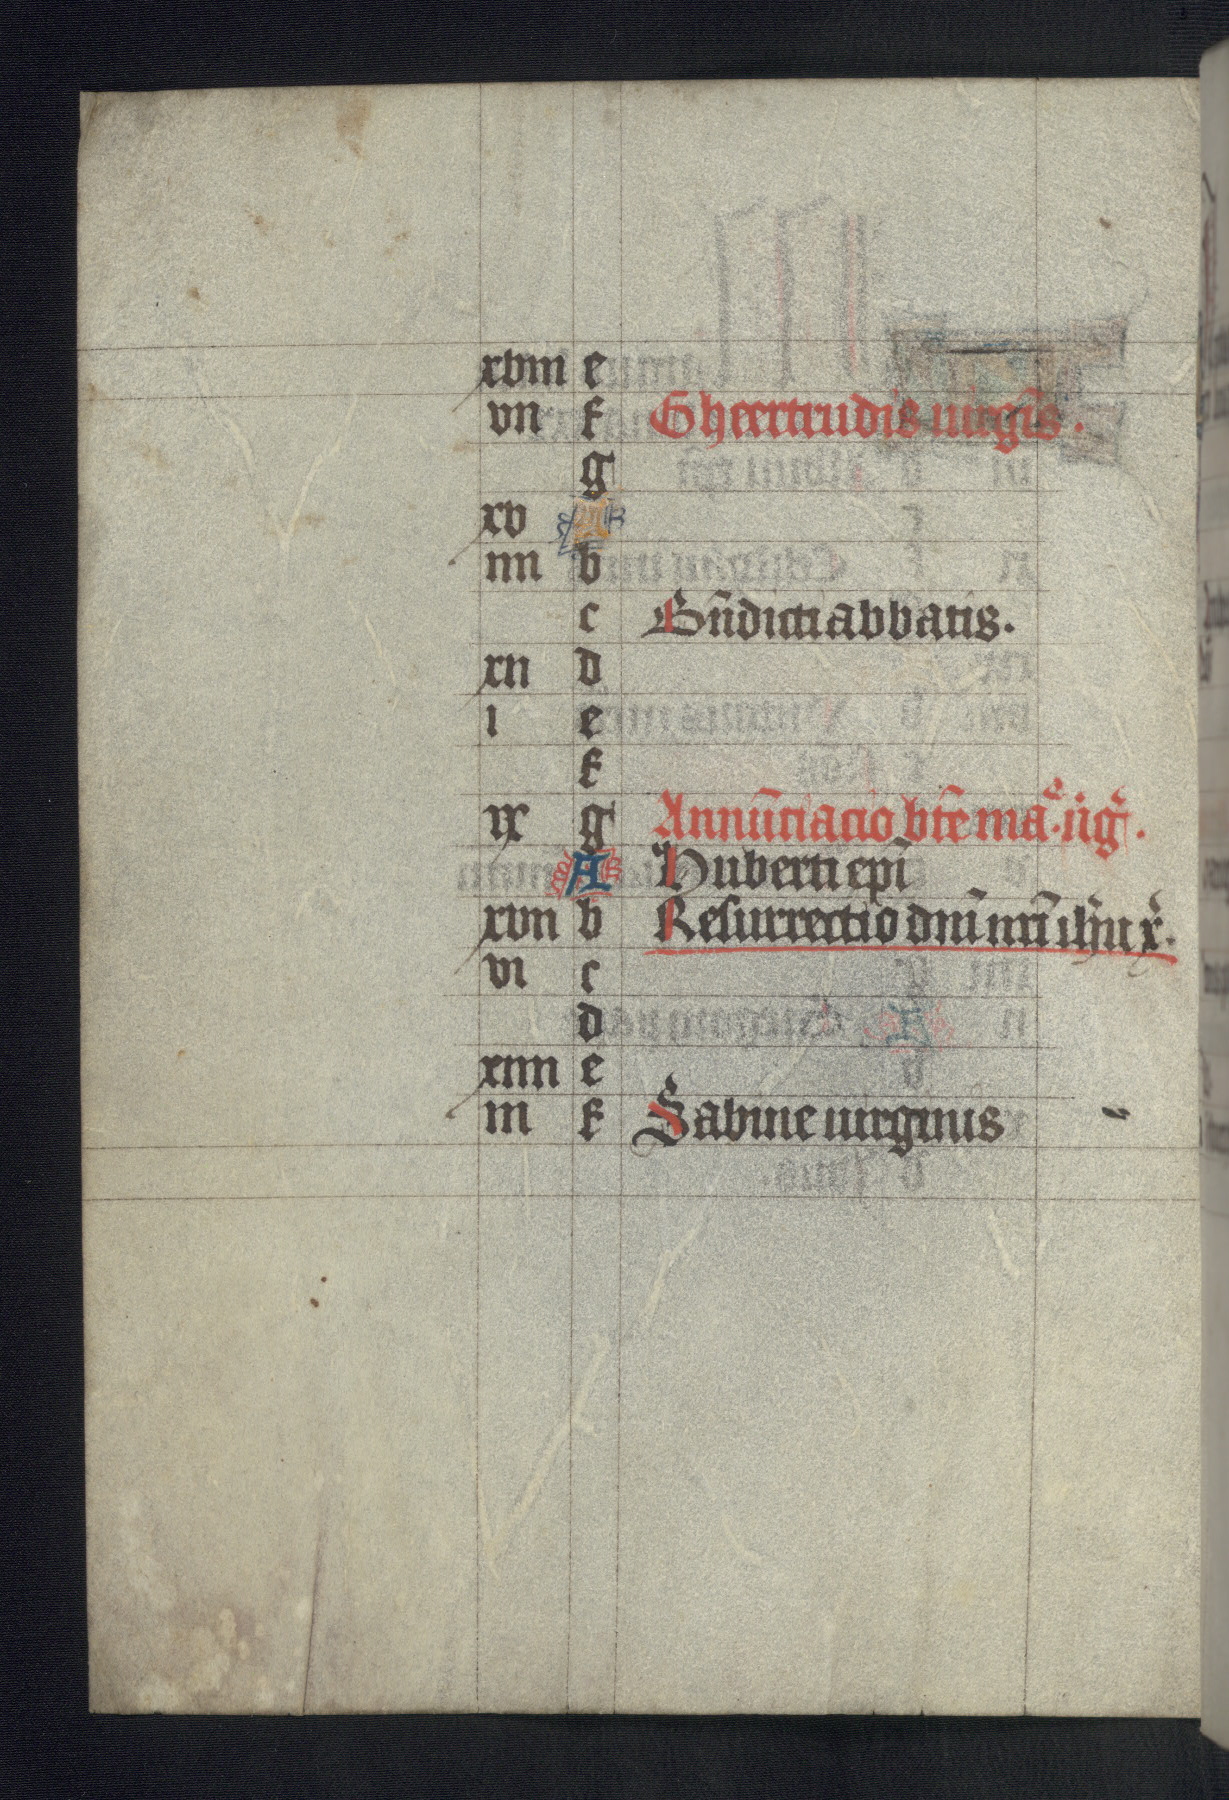 xviii e
vii f Gheertrudis uirgīs.
g
xv A
iiii b
c Bn̄dicti abbatis.
xii d
i e
f
ix g Annūciacio btē maͬ. uͥgͥ.
A Huberti epī
xvii b Resurrectio dnī nrī ihū xͥ.
vi c
d
xiiii e
iii f Sabine uirginis